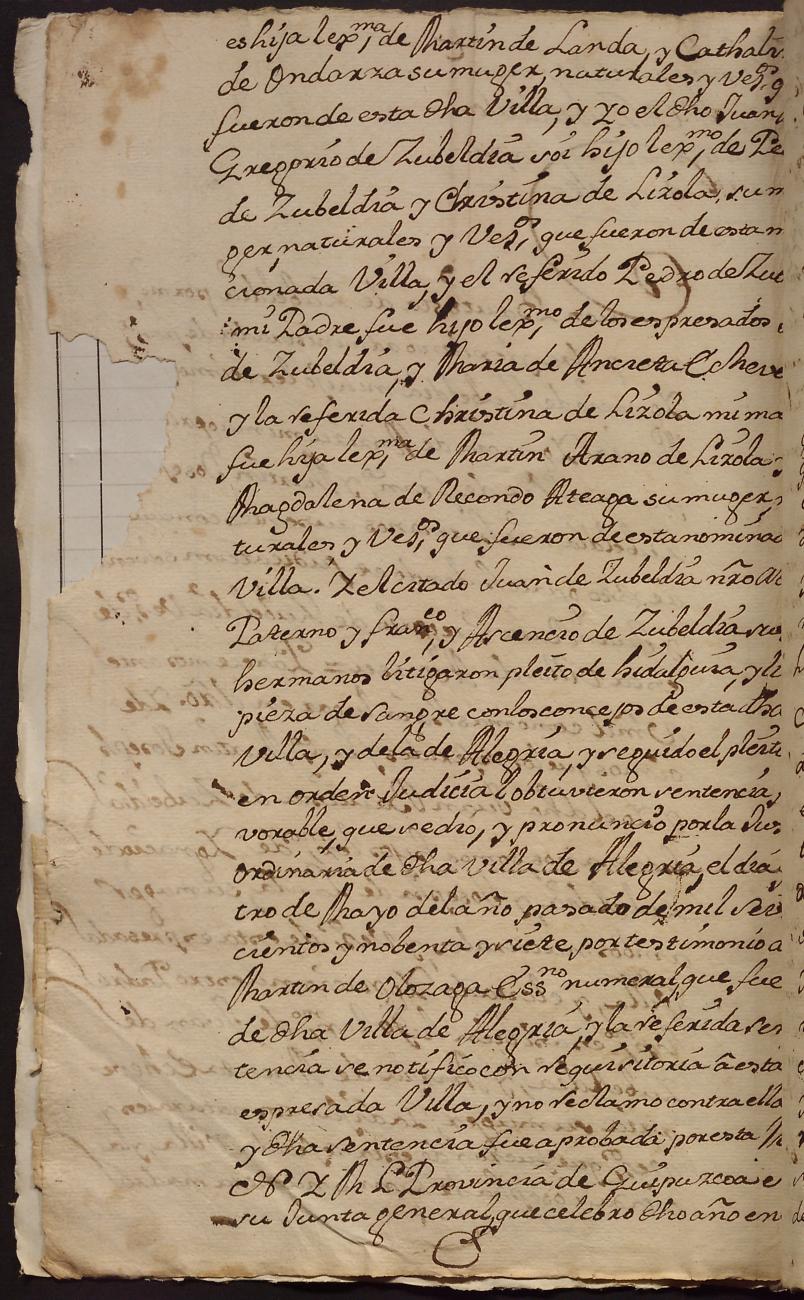 es hija lexma, de Martin de Landa, y Cathali
de Ondarza su muger, naturales y Vezos, q
fueron de esta dha Villa, y yo el dho Juan
Gregorio de Zubeldia soi hijo lexmo, de Pe
de Zubeldia y Christina de Lizola, su m
ger, naturales y Vezos, que fueron de esta m
cionada Villa, y el referido Pedro de Zub
mi Padre fue hijo lexmo, de los espresados
de Zubeldia, y Maria de Ancieta Echeve
y la referida Christina de Lizola mi ma
fue hija lexma, de Martin Arano de Lizola
Magdalena de Recondo Ateaga su muger,
turales y Vezos, que fueron de esta nomina
Villa. Y el citado Juan de Zubeldia nro
Paterno y franco, y Ascencio de Zubeldia su
hermanos litigaron pleito de hidalguia, y li
pieza de sangre con los concejos de esta dha
Villa, y de la de Alegria, y seguido el pleit
en orden Judicial obtuvieron sentencia,
vorable, que se dio, y pronuncio por la Jus
ordinaria de dha Villa de Alegria, el dia
tro de Mayo del año pasado de mil seis
cientos y nobenta y siete, por testimonio
Martin de Olozaga Essno numeral, que fue
de dha Villa de Alegria, y la referida sen
tencia se notifico con requisitoria â esta
espresada Villa, y no reclamo contra ella
y dha sentencia fue aprobada por esta M
N Y M L Provincia de Guipuzcoa e
su Junta general, que celebro dho año en